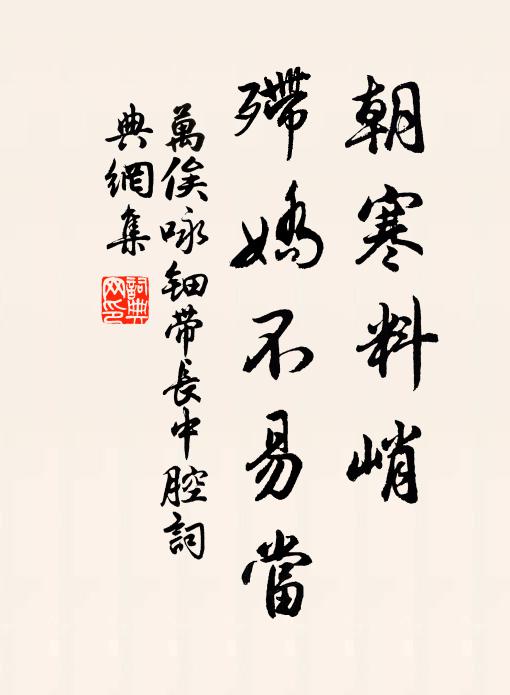 朝寒料峭
殢嬌不易當
萬俟咏鈿帶長中腔詞
典網集
詞典
网印